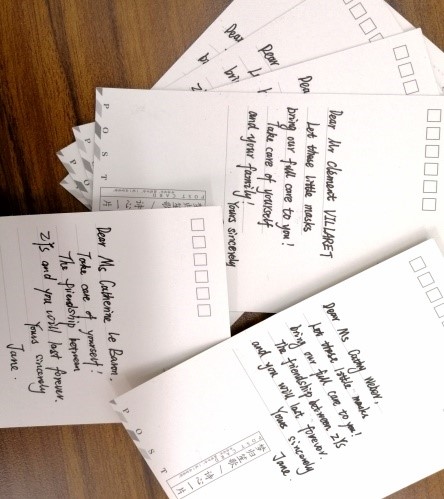 Dear
bri
Dear
bri
Dear
Dea
Dear Mr Clément VILLARET
Let those little masks
bring our full care to you!
Take care of yourself
and your family!
Yours sincerely
POST
POST CARD
Dear Ms Catherine Le Baron,
Take care of yourself!
The friendship between
ZJS and you will last forever.
Yours sincerely
Jane.
Dear Ms Cathy Weber
Let those little masks
bring our full care to you!
The friendship between ZJS
and you will last forever.
Yours sincerely
Jane.
POST
POST CARD